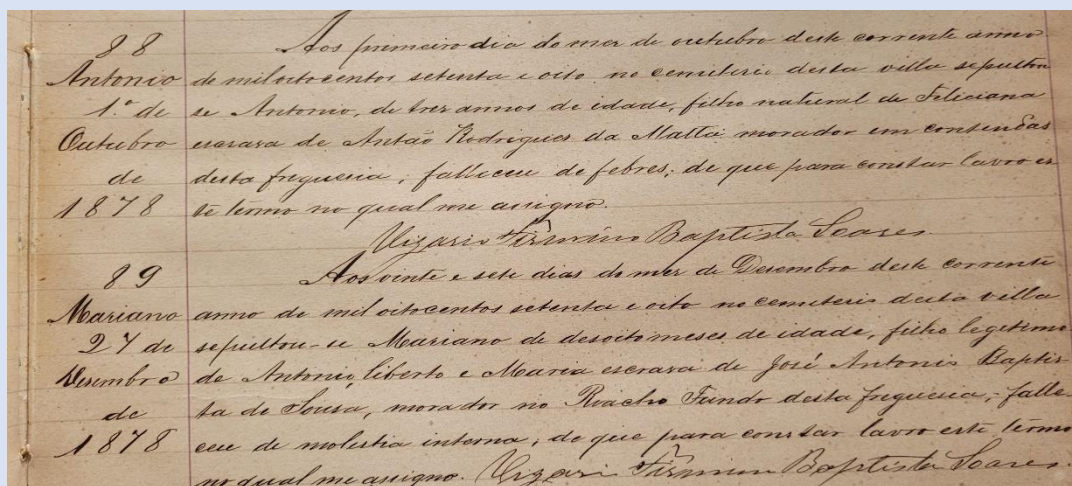 88
Antonio
1º de
Outubro
de
1878
Aos primeiro dia do mez de outubro deste corrente anno
de mil oitocentos setenta e oito no cemiterio desta villa sepultou
se Antonio, de trez annos de idade, filho natural de Feliciana
escrava de Antão Rodrigues da Matta morador em
desta freguesia, falleceu de febres; de que para constar lavro es
te termo no qual me assigno.
Vigario Firmino Baptista Soares.
89
Mariano
27 de
Desembro
de
1878
Aos vinte e sete dias do mez de Desembro deste corrente
anno de mil oitocentos setenta e oito no cemiterio desta villa
sepultou-se Mariano de desoito meses de idade, filho legitimo
de Antonio, liberto e Maria escrava de José Antonio Baptis-
ta de Sousa, morador no Riacho Fundo desta freguesia; falle-
ceu de molestia interna; de que para constar lavro este termo
no qual me assigno. Vigari Firmino Baptista Soares.